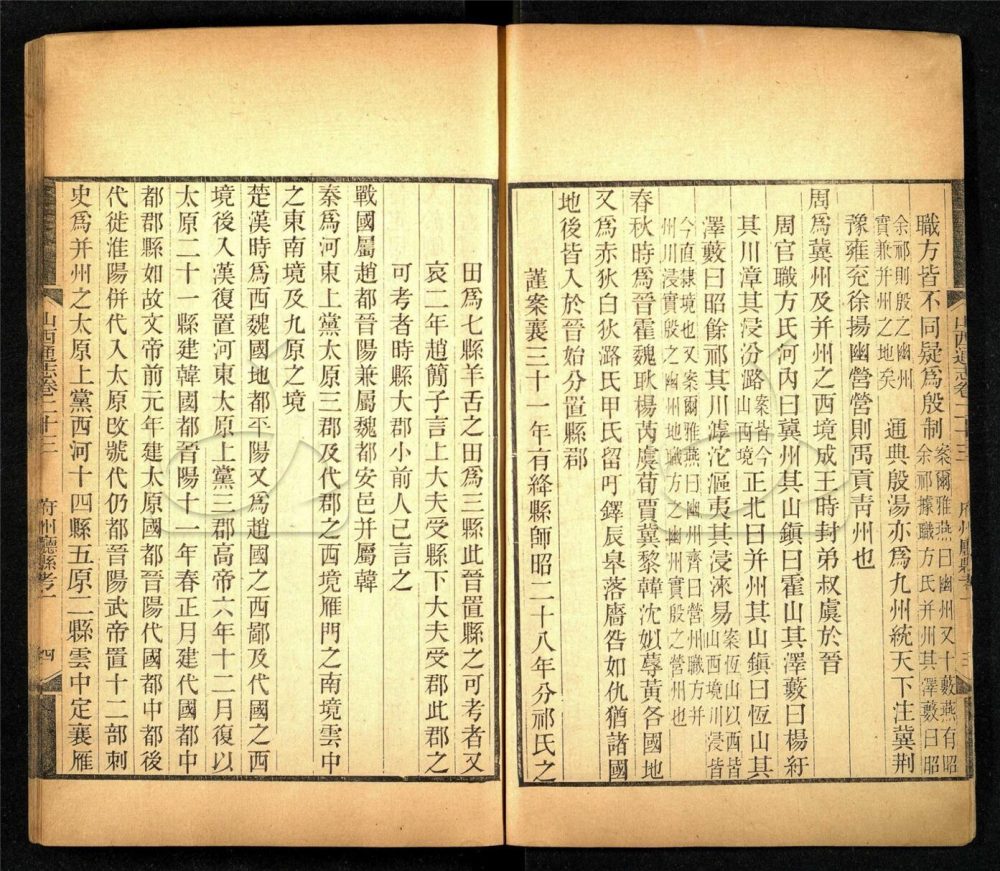 職方皆不同疑爲殷制案爾雅燕曰幽州又十藪燕有昭余祁據職方氏并州其澤藪曰昭
余祁則殷之幽州實兼并州之地矣通典殷湯亦爲九州統天下注冀荆
豫雍兖徐揚幽營營則禹貢青州也
周爲冀州及并州之西境成王時封弟叔虞於晉
周官職方氏河內曰冀州其山鎮曰霍山其澤藪曰楊紆
其川漳其浸汾潞案皆今山西境正北曰并州其山鎮曰恆山其
澤藪曰昭餘祁其川滹沱漚夷其浸淶易案恆山以西皆山西境川浸皆
今直隷境也又案爾雅燕曰幽州齊曰營州職方并州川浸實殷之幽州地職方之幽州實殷之營州也
春秋時爲晉霍魏耿楊芮虞荀賈冀黎韓沈姒蓐黃各國地
又爲赤狄白狄潞氏甲氏留吁鐸辰皋落廧咎如仇猶諸國
地後皆入於晉始分置縣郡
謹案襄三十一年有絳縣師昭二十八年分祁氏之
田爲七縣羊舌之田爲三縣此晉置縣之可考者又
哀二年趙簡子言上大夫受縣下大夫受郡此郡之
可考者時縣大郡小前人已言之
戰國屬趙都晉陽兼屬魏都安邑并屬韓
秦爲河東上黨太原三郡及代郡之西境雁門之南境雲中
之東南境及九原之境
楚漢時爲西魏國地都平陽又爲趙國之西鄙及代國之西
境後入漢復置河東太原上黨三郡高帝六年十二月復以
太原二十一縣建韓國都晉陽十一年春正月建代國都中
都郡縣如故文帝前元年建太原國都晉陽代國都中都後
代徙淮陽併代入太原改號代仍都晉陽武帝置十二部刺
史爲并州之太原上黨西河十四縣五原二縣雲中定襄雁
山西通志卷二十三 府州廳縣考一 四